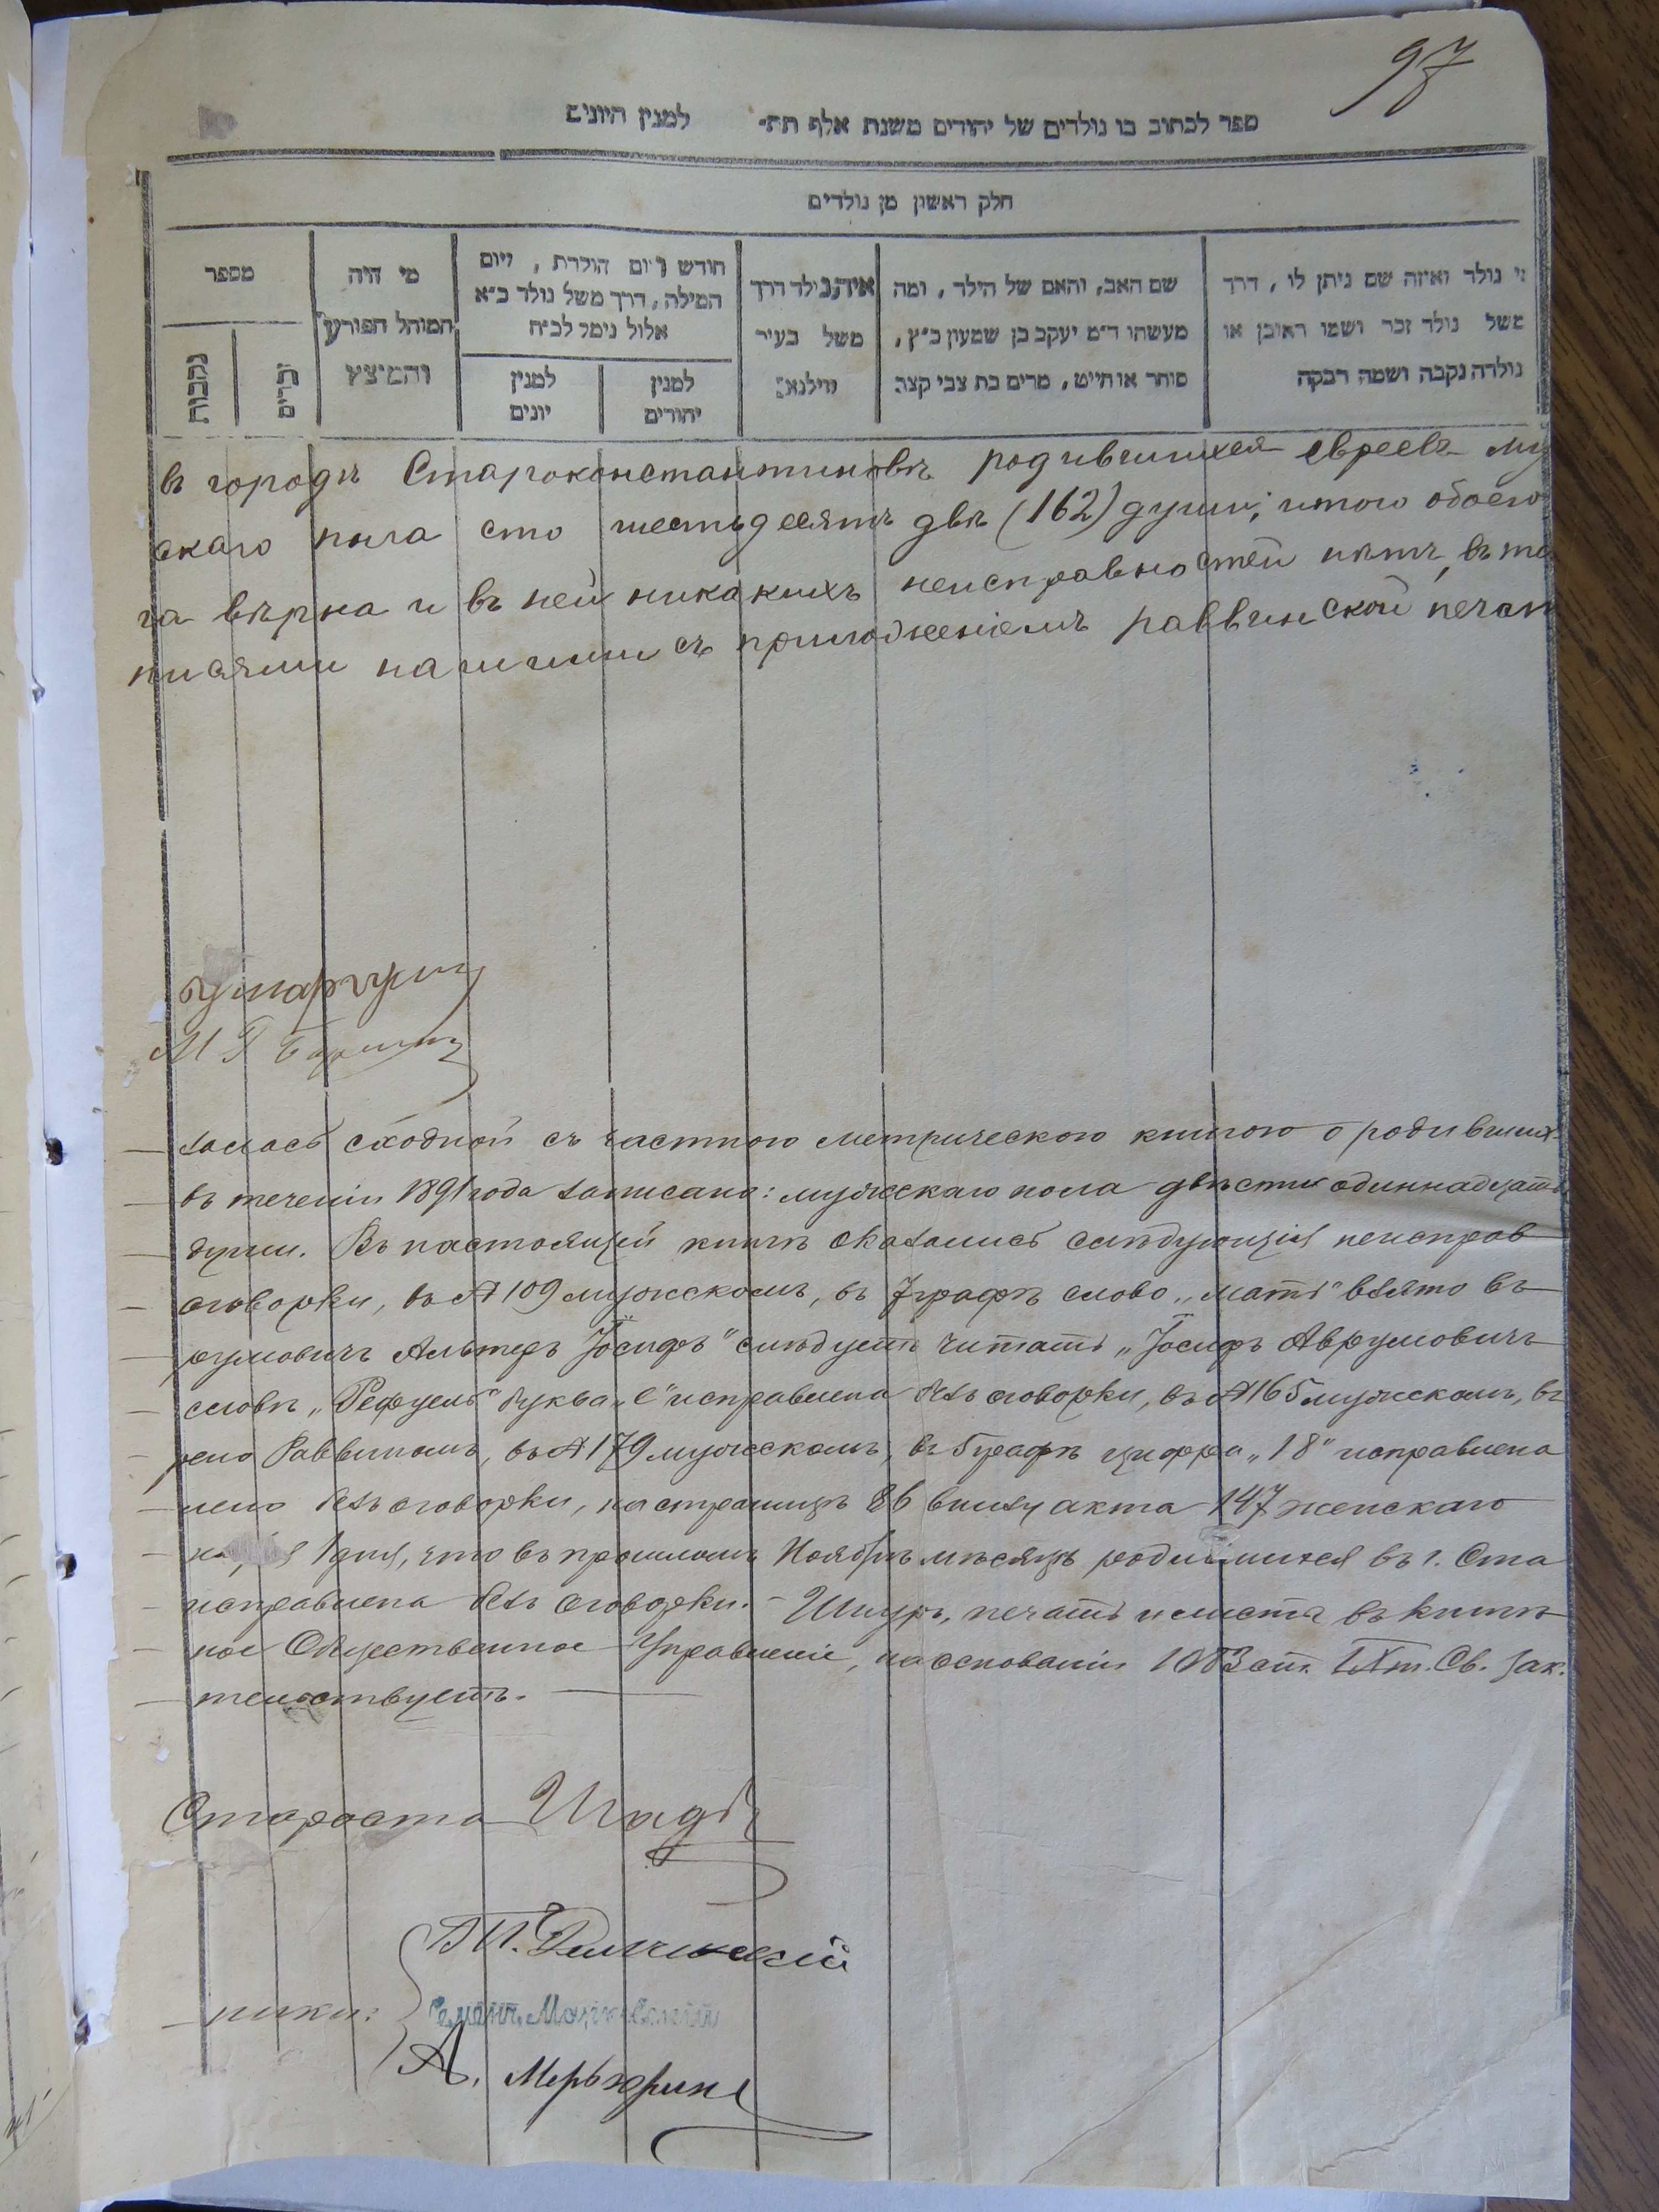 97
ספר לכתוב בו נולדים של יהודים משנת אלף תת״ למנין היונים
חלק ראשון מן נולדים
מי נולד ואיזה שם ניתן לו, דרך
משל נולד זכר ושמו ראובן או
נולדה נקבה ושמה רבקה
שם האב, והאם של הילד, ומה
מעשהו ד״מ יעקב בן שמעון כ״ץ,
סוחר או חייט, מרים בת צבי קצב
איה נולד דרך
משל בעיר
ווילנא
חודש ויום הולדת, ויום
המילה, דרך משל נולד כ״א
אלול נימל לכ״ח
למנין
יהודים
למנין
יונים
מי היה
המוהל הפורע
והמוצץ
מספר
זכרים
נקבות
въ городѣ Староконстантиновѣ родившихся евреевъ му
скаго пола сто шестьдесятъ двѣ (162) души; итого обоего
га вѣрна и въ ней никакихъ неисправностей нѣтъ, въ то
писями нашими съ приложеніемъ раввинской печат
залась сходной съ частною метрическою книгою о родивших
въ теченіи 1891 года записано: мужескаго пола двѣсти одиннадцать
души. Въ настоящей книгѣ оказались слѣдующія неисправ
оговорки, въ № 109 мужескомъ, въ 7 графѣ слово „мать" взято въ
румовичъ Альтеръ Іосифъ" слѣдуетъ читать „Іосифъ Аврумовичъ
словѣ „Рефуель" буква „е" исправлена безъ оговорки, въ № 165 мужескомъ, въ
рено Раввиномъ, въ № 179 мужескомъ, въ 5 графѣ цифра „18" исправлена
лено безъ оговорки, на страницѣ 86 внизу акта 147 женскаго
1 дня, что въ прошломъ Ноябрѣ мѣсяцѣ родившихся въ г. Ста
исправлена безъ оговорки. – Шнуръ, печать и листы въ книгѣ
ное Общественное Управленіе, на основаніи 1083 ст. IX т. Св. Зак.
тельствуетъ.
Староста
ники: